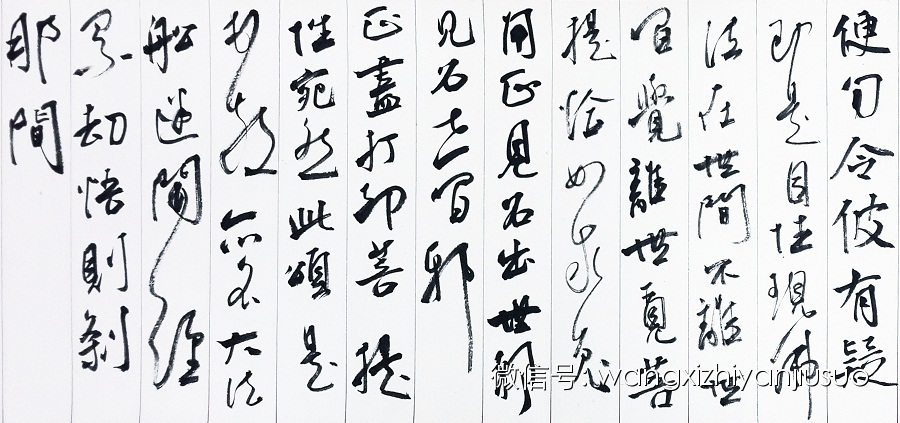 便勿令彼有疑
即是自性現佛
法在世間不離世
間覺離世覓菩
提恰如求兔
角正見名出世邪
見名世間邪
正盡打卻菩提
性宛然此頌是
頓教亦名大法
船迷聞經
累劫悟則剎
那間
微信号: wangxizhiyanjiusuo